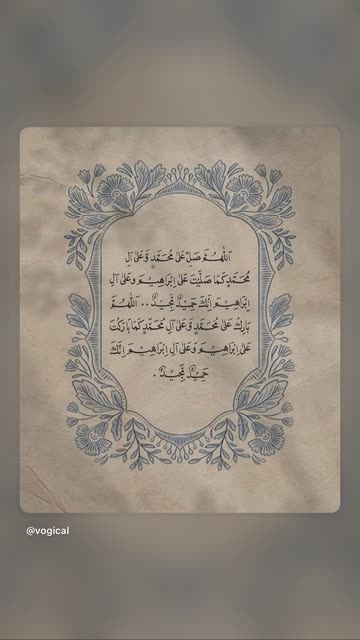 اَللّٰهُمَّ صَلِّ عَلىٰ مُحَمَّدٍ وَّعَلىٰ اٰلِ
مُحَمَّدٍ كَمَا صَلَّيْتَ عَلىٰ اِبْرَاهِيْمَ وَعَلىٰ اٰلِ
اِبْرَاهِيْمَ اِنَّكَ حَمِيْدٌ مَّجِيْدٌ .. اَللّٰهُمَّ
بَارِكْ عَلىٰ مُحَمَّدٍ وَّعَلىٰ اٰلِ مُحَمَّدٍ كَمَا بَارَكْتَ
عَلىٰ اِبْرَاهِيْمَ وَعَلىٰ اٰلِ اِبْرَاهِيْمَ اِنَّكَ
حَمِيْدٌ مَّجِيْدٌ .
@vogical